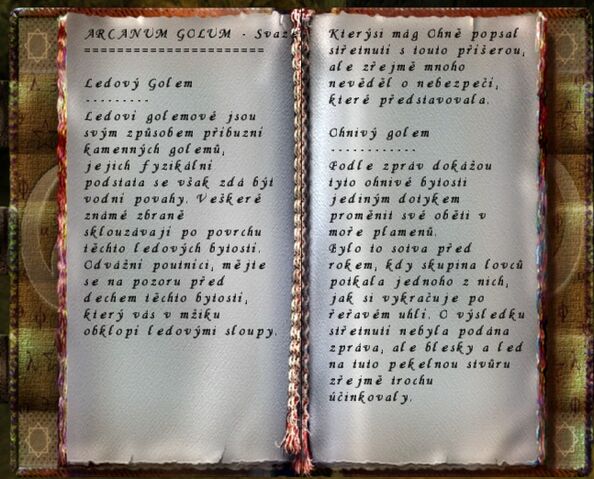 ARCANUM GOLUM - Svaze
======================
Ledový Golem
---------
Ledoví golemové jsou
svým způsobem příbuzní
kamenných golemů,
jejich fyzikální
podstata se však zdá být
vodní povahy. Veškeré
známé zbraně
sklouzávají po povrchu
těchto ledových bytostí.
Odvážní poutníci, mějte
se na pozoru před
dechem těchto bytostí,
který vás v mžiku
obklopí ledovými sloupy.
Kterýsi mág Ohně popsal
střetnutí s touto příšerou,
ale zřejmě mnoho
nevěděl o nebezpečí,
které představovala.
Ohnivý golem
------------
Podle zpráv dokážou
tyto ohnivé bytosti
jediným dotykem
proměnit své oběti v
moře plamenů.
Bylo to sotva před
rokem, kdy skupina lovců
potkala jednoho z nich,
jak si vykračuje po
řeřavém uhlí. O výsledku
střetnutí nebyla podána
zpráva, ale blesky a led
na tuto pekelnou stvůru
zřejmě trochu
účinkovaly.